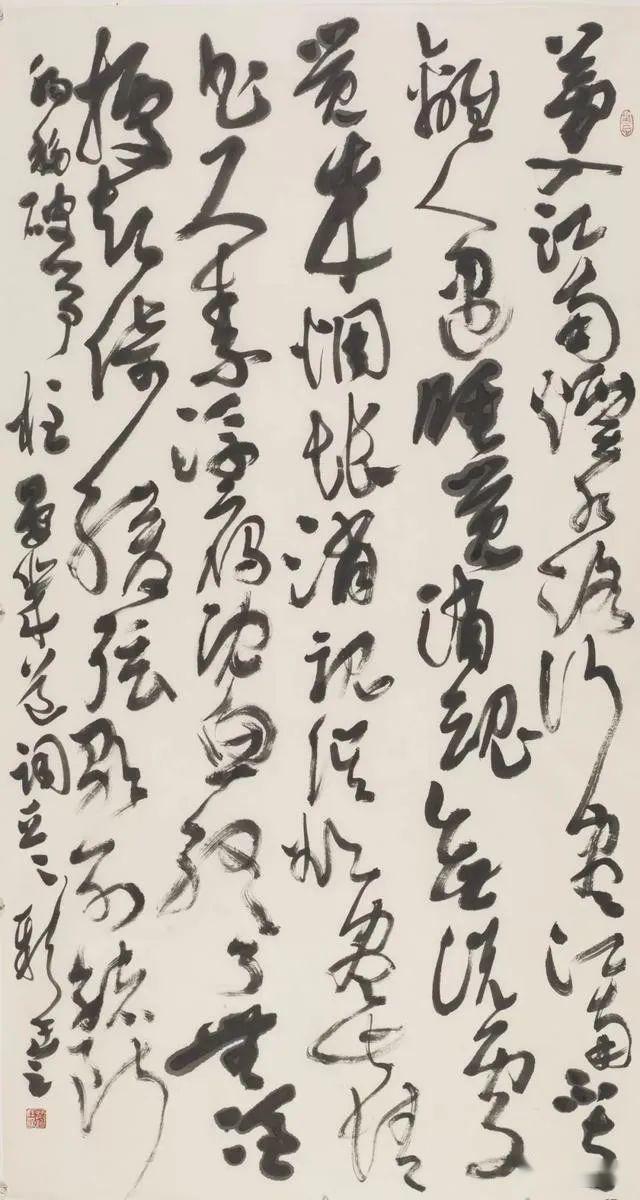 夢入江南煙水路行盡江南不與
離人遇睡覺消魂無說處
覺來惆悵消魂誤欲盡此情
書尺素浮雁沈魚終了無憑
據却倚緩弦歌別緒斷
腸移破箏柱 晏幾道詞